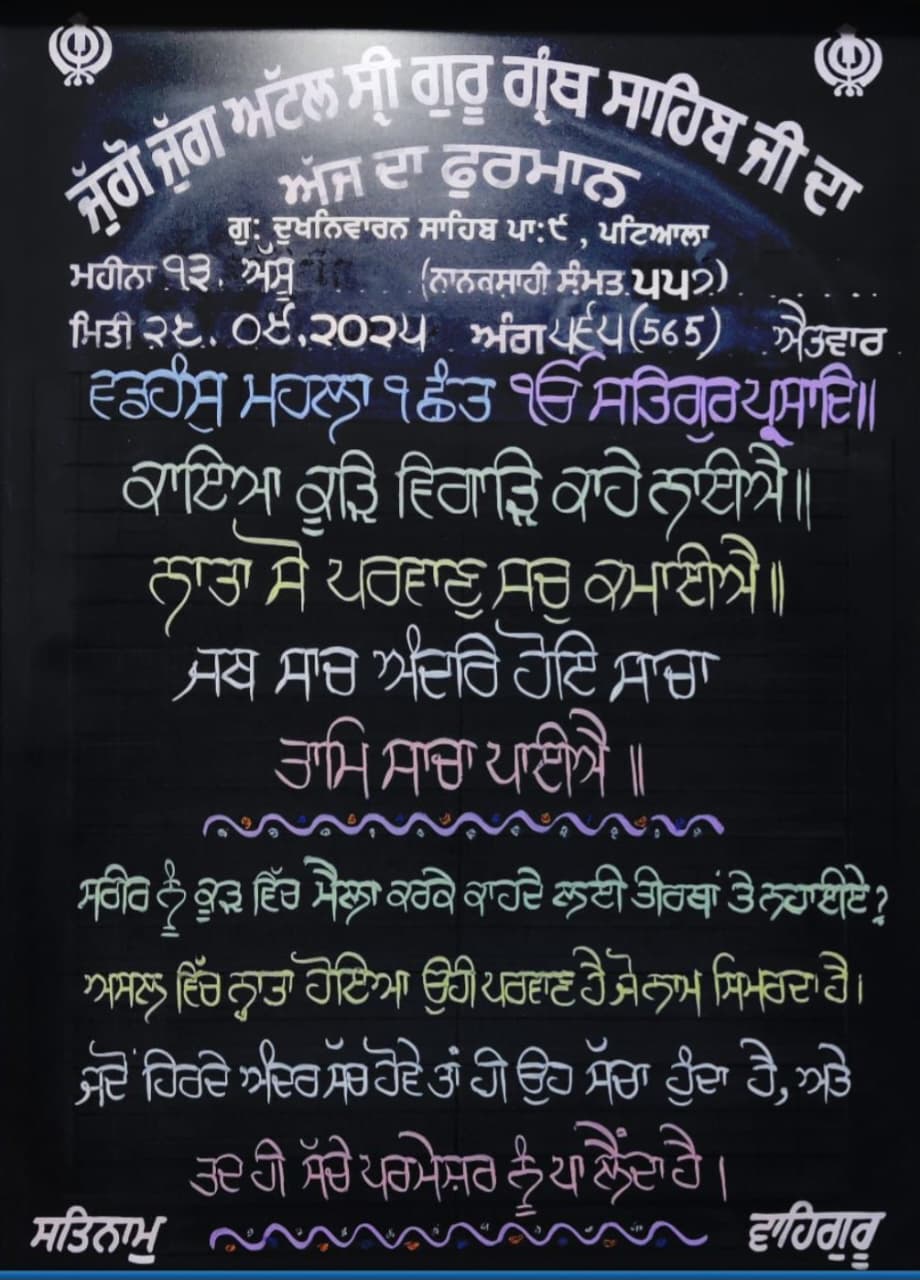 ਜੁੱਗੋ ਜੁੱਗ ਅਟੱਲ ਸ੍ਰੀ ਗੁਰੂ ਗ੍ਰੰਥ ਸਾਹਿਬ ਜੀ ਦਾ
ਅੱਜ ਦਾ ਫੁਰਮਾਨ
ਗੁ: ਦੁਖਨਿਵਾਰਨ ਸਾਹਿਬ ਪਾ:੯ , ਪਟਿਆਲਾ
ਮਹੀਨਾ ੧੩. ਅੱਸੂ (ਨਾਨਕਸਾਹੀ ਸੰਮਤ ੫੫੭)
ਮਿਤੀ ੨੮. ੦੯.੨੦੨੫ ਅੰਗ ੫੬੫ (565) ਐਤਵਾਰ
ਵਡਹੰਸੁ ਮਹਲਾ ੧ ਛੰਤ ੴ ਸਤਿਗੁਰ ਪ੍ਰਸਾਦਿ॥
ਕਾਇਆ ਕੂੜਿ ਵਿਗਾੜਿ ਕਾਹੇ ਨਾਈਐ॥
ਨਾਤਾ ਸੋ ਪਰਵਾਣੁ ਸਚੁ ਕਮਾਈਐ॥
ਜਬ ਸਾਚ ਅੰਦਰਿ ਹੋਇ ਸਾਚਾ
ਤਾਮਿ ਸਾਚਾ ਪਾਈਐ ॥
ਸਰੀਰ ਨੂੰ ਕੂੜ ਵਿੱਚ ਮੈਲਾ ਕਰਕੇ ਕਾਹਦੇ ਲਈ ਤੀਰਥਾਂ ਤੇ ਨਹਾਈਏ?
ਅਸਲ ਵਿੱਚ ਨ੍ਹਾਤਾ ਹੋਇਆ ਉਹੀ ਪਰਵਾਣ ਹੈ ਜੋ ਨਾਮ ਸਿਮਰਦਾ ਹੈ।
ਜਦੋਂ ਹਿਰਦੇ ਅੰਦਰ ਸੱਚ ਹੋਵੇ ਤਾਂ ਹੀ ਉਹ ਸੱਚਾ ਹੁੰਦਾ ਹੈ, ਅਤੇ
ਤਦ ਹੀ ਸੱਚੇ ਪਰਮੇਸ਼ਰ ਨੂੰ ਪਾ ਲੈਂਦਾ ਹੈ।
ਸਤਿਨਾਮੁ ਵਾਹਿਗੁਰੂ